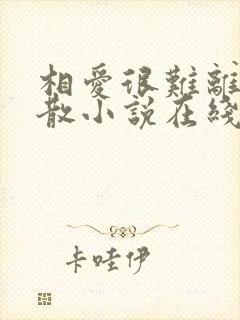 相愛很難離
散小說在綫
卡哇伊